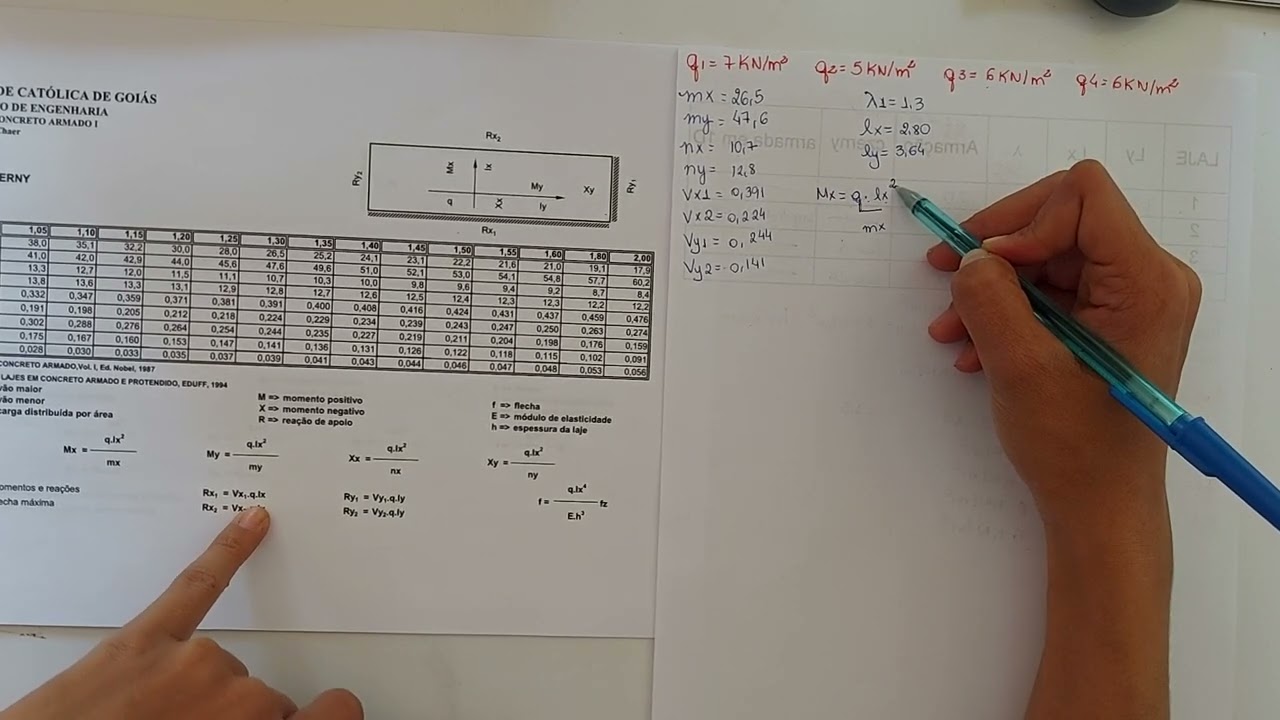 DE CATÓLICA DE GOIÁS
O DE ENGENHARIA
ONCRETO ARMADO I
Chaer
ERNY
Rx₂
Ry₂
Mx
lx
My
Xy
Ry₁
q
Xx
ly
Rx₁
1,05 1,10 1,15 1,20 1,25 1,30 1,35 1,40 1,45 1,50 1,55 1,60 1,80 2,00
38,0 35,1 32,2 30,0 28,0 26,5 25,2 24,1 23,1 22,2 21,6 21,0 19,1 17,9
41,0 42,0 42,9 44,0 45,6 47,6 49,6 51,0 52,1 53,0 54,1 54,8 57,7 60,2
13,3 12,7 12,0 11,5 11,1 10,7 10,3 10,0 9,8 9,6 9,4 9,2 8,7 8,4
13,8 13,6 13,3 13,1 12,9 12,8 12,7 12,6 12,5 12,4 12,3 12,3 12,2 12,2
0,332 0,347 0,359 0,371 0,381 0,391 0,400 0,408 0,416 0,424 0,431 0,437 0,459 0,476
0,191 0,198 0,205 0,212 0,218 0,224 0,229 0,234 0,239 0,243 0,247 0,250 0,263 0,274
0,302 0,288 0,276 0,264 0,254 0,244 0,235 0,227 0,219 0,211 0,204 0,198 0,176 0,159
0,175 0,167 0,160 0,153 0,147 0,141 0,136 0,131 0,126 0,122 0,118 0,115 0,102 0,091
0,028 0,030 0,033 0,035 0,037 0,039 0,041 0,043 0,044 0,046 0,047 0,048 0,053 0,056
CONCRETO ARMADO,Vol. I, Ed. Nobel, 1987
LAJES EM CONCRETO ARMADO E PROTENDIDO, EDUFF, 1994
vão maior
vão menor
carga distribuida por área
M => momento positivo
X => momento negativo
R => reação de apoio
f => flecha
E => módulo de elasticidade
h => espessura da laje
Mx = q.lx² / mx
My = q.lx² / my
Xx = q.lx² / nx
Xy = q.lx² / ny
omentos e reações
echa máxima
Rx₁ = Vx₁.q.lx
Rx₂ = Vx
Ry₁ = Vy₁.q.ly
Ry₂ = Vy₂.q.ly
f = q.lx⁴ / E.h³ fz
q1 = 7KN/m² q2 = 5KN/m² q3 = 6KN/m² q4 = 6KN/m²
mx = 26,5
my = 47,6
nx = 10,7
ny = 12,8
Vx1 = 0,391
Vx2 = 0,224
Vy1 = 0,244
Vy2 = 0,141
λ1 = 1,3
lx = 2,80
ly = 3,64
Mx = q . lx²
mx
LAJE Ly Lx λ Armação cruz
armada em 1D
1
2
3